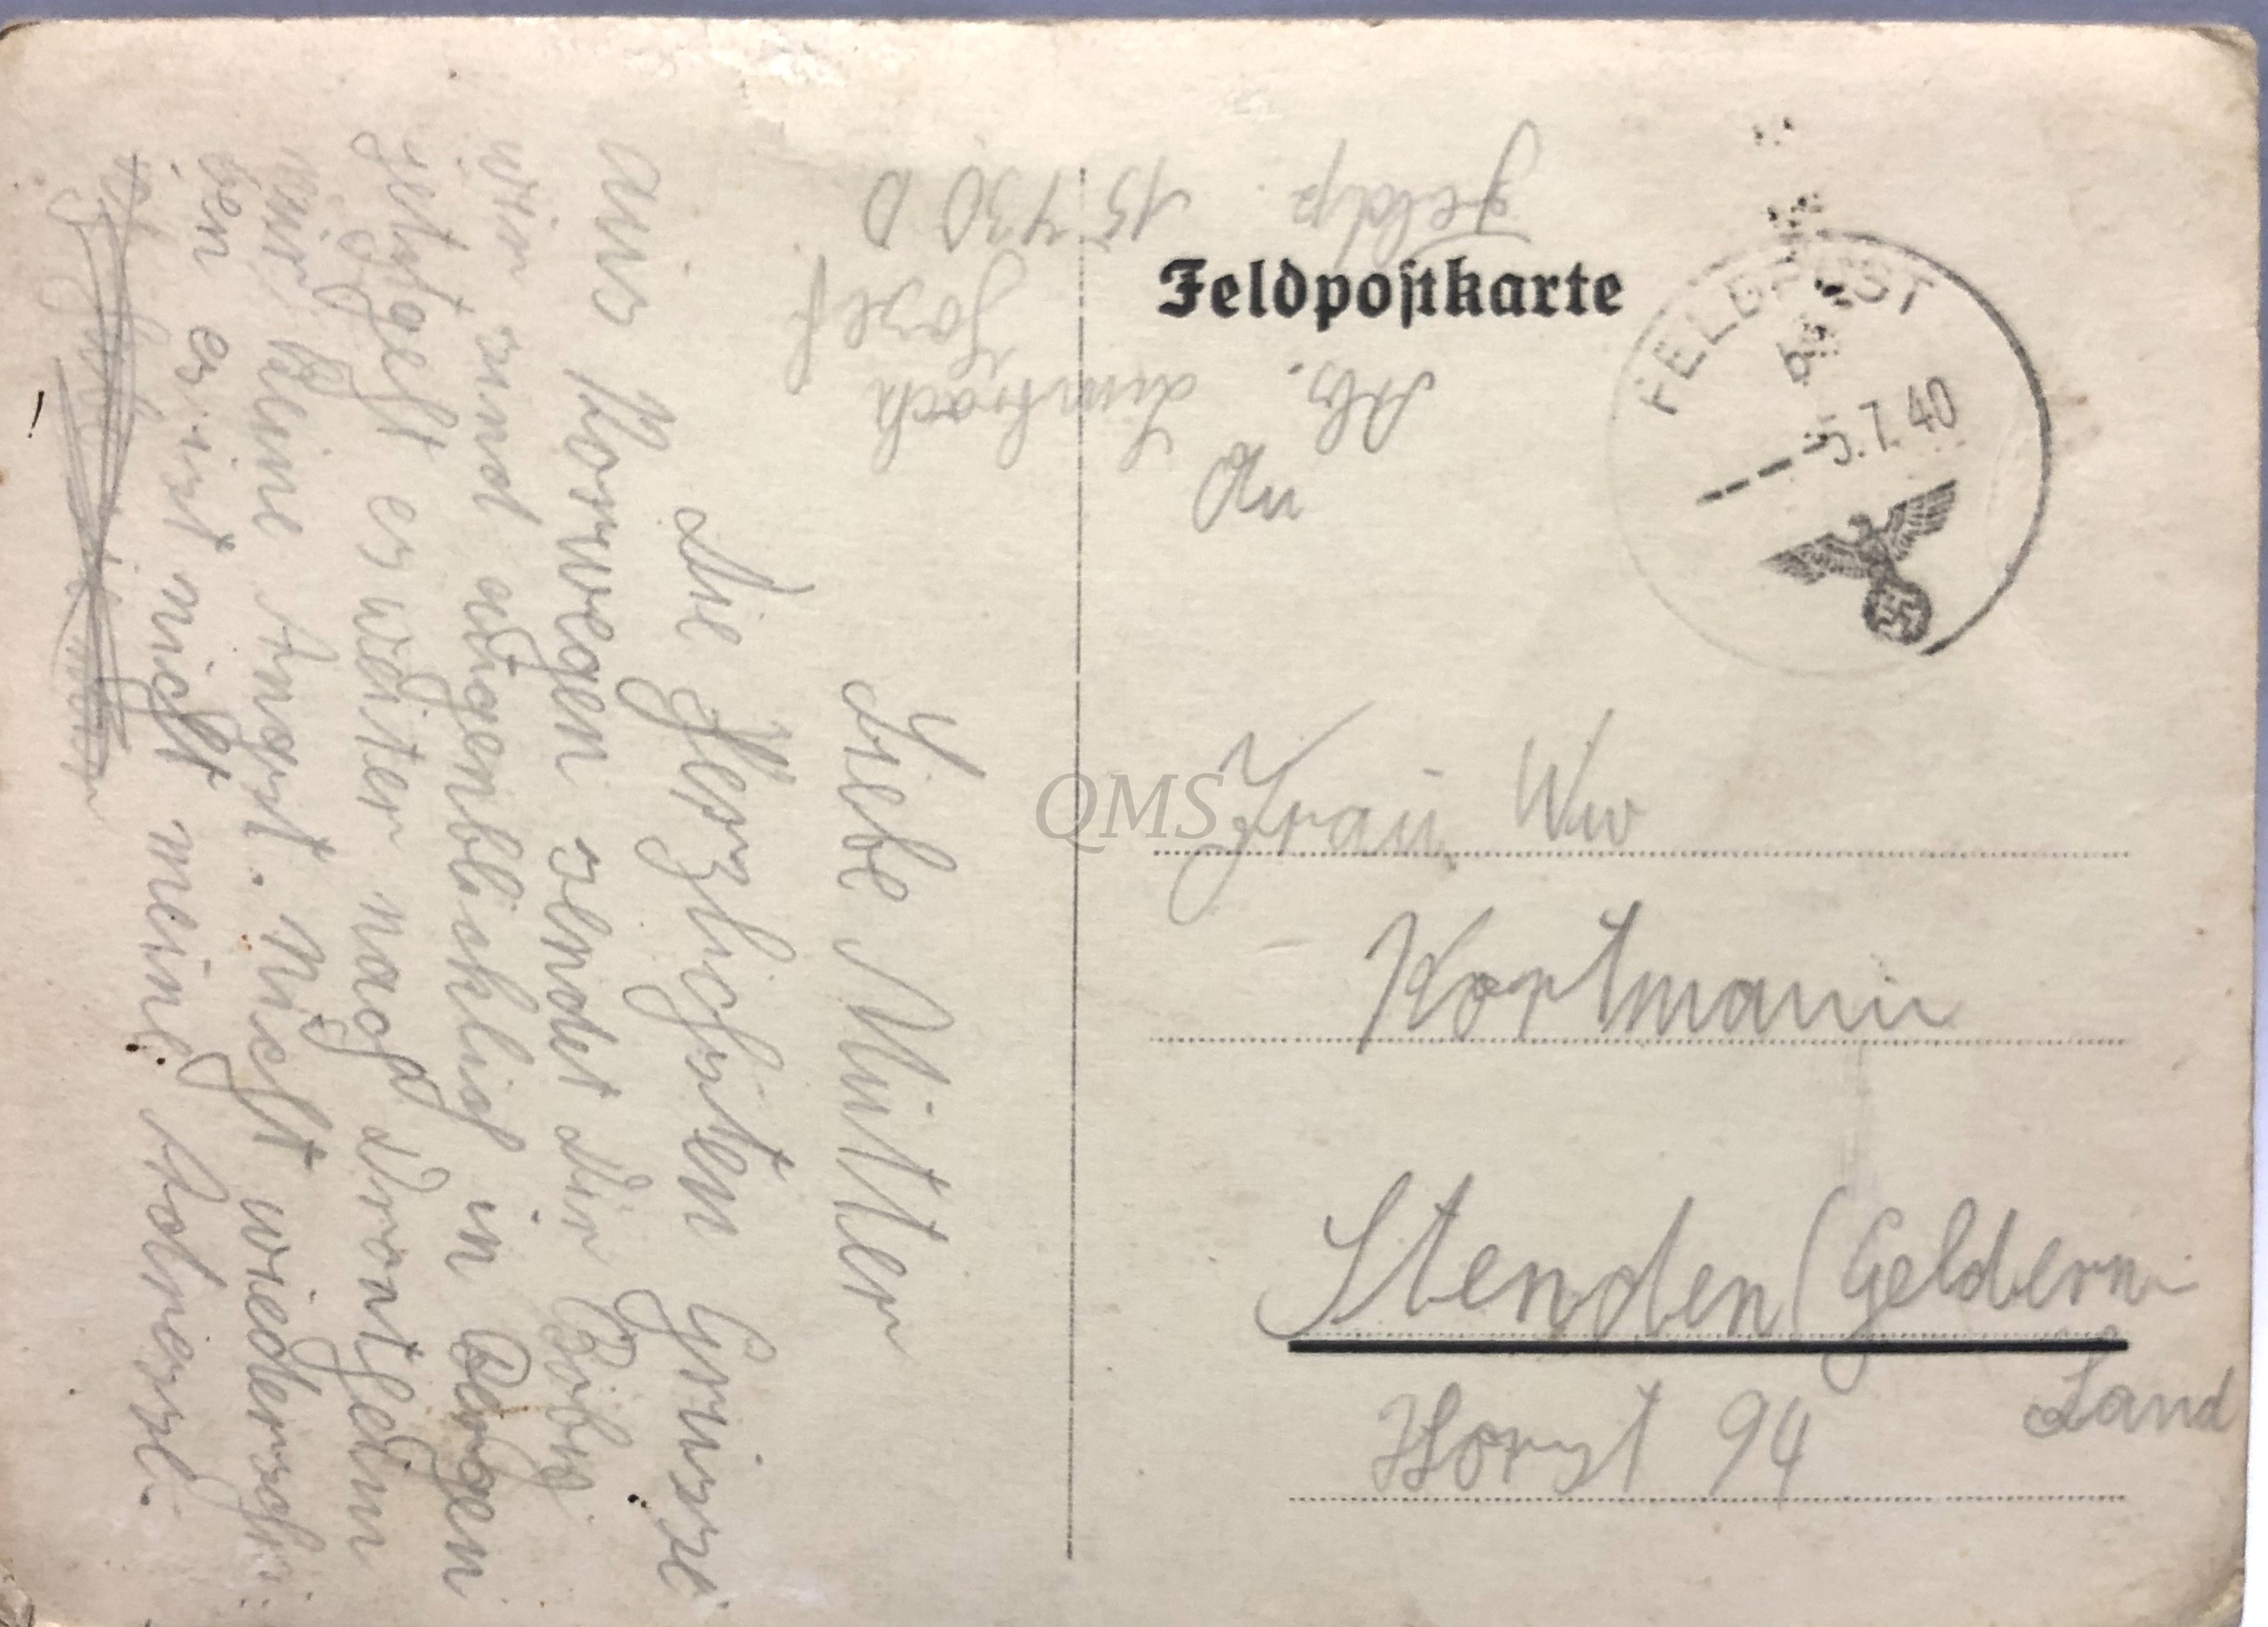 Feldpostkarte
FELDPOST
b
-5.7.40
Feldp. 15 730 D
Abs. Limbach Josef
An
Frau Ww
Kortmann
Stenden (Geldern
Land
Horst 94
QMS
Liebe Mutter
Die Herzlichsten Grüsse
aus Norwegen sendet dir
wir sind augenblicklich in Bergen
jetzt geht es weiter nach Drontheim
nur keine Angst. Nicht wiederschrei
ben es ist nicht meine Adresse.